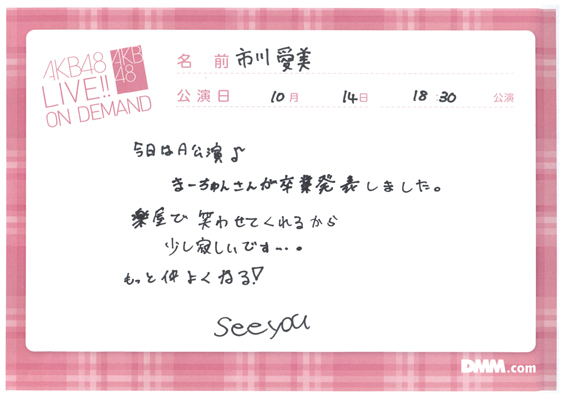 AKB48
LIVE!!
ON DEMAND
AKB
48
名 前 市川愛美
公演日 10月 14日 18:30 公演
今日はA公演♪
きーちゃんさんが卒業発表しました。
楽屋で笑わせてくれるから
少し寂しいです...。
もっと仲よくなる!
seeyou
DMM.com